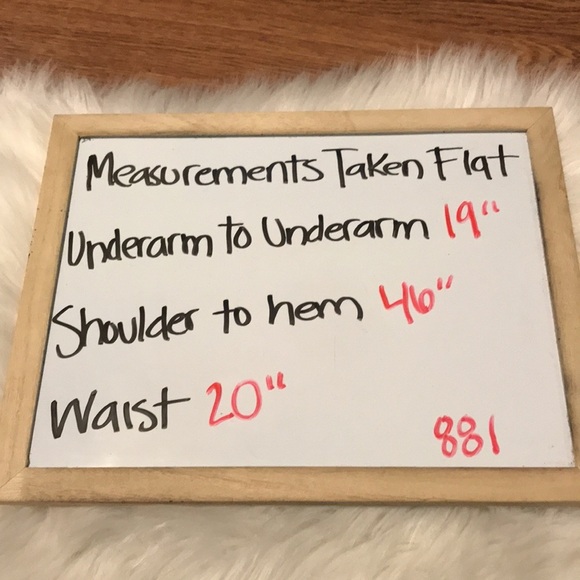 Measurements Taken Flat
Underarm to Underarm 19"
Shoulder to hem 46"
Waist 20"
881